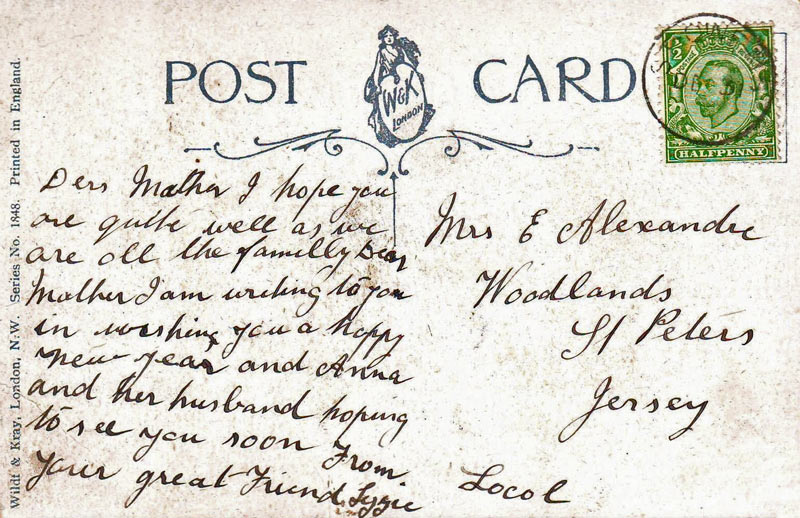 POST CARD
W&K
LONDON
½
HALFPENNY
Wildt & Kray, London, N.W. Series No. 1848. Printed in England.
Ders Mather I hope you
are quitte well as we
are all the familly Dear
Mather I am writing to you
in wishing you a happy
new year and Anna
and her husband hoping
to see you soon From
your great Friend Lizzie
Mrs E Alexandre
Woodlands
St Peters
Jersey
Local